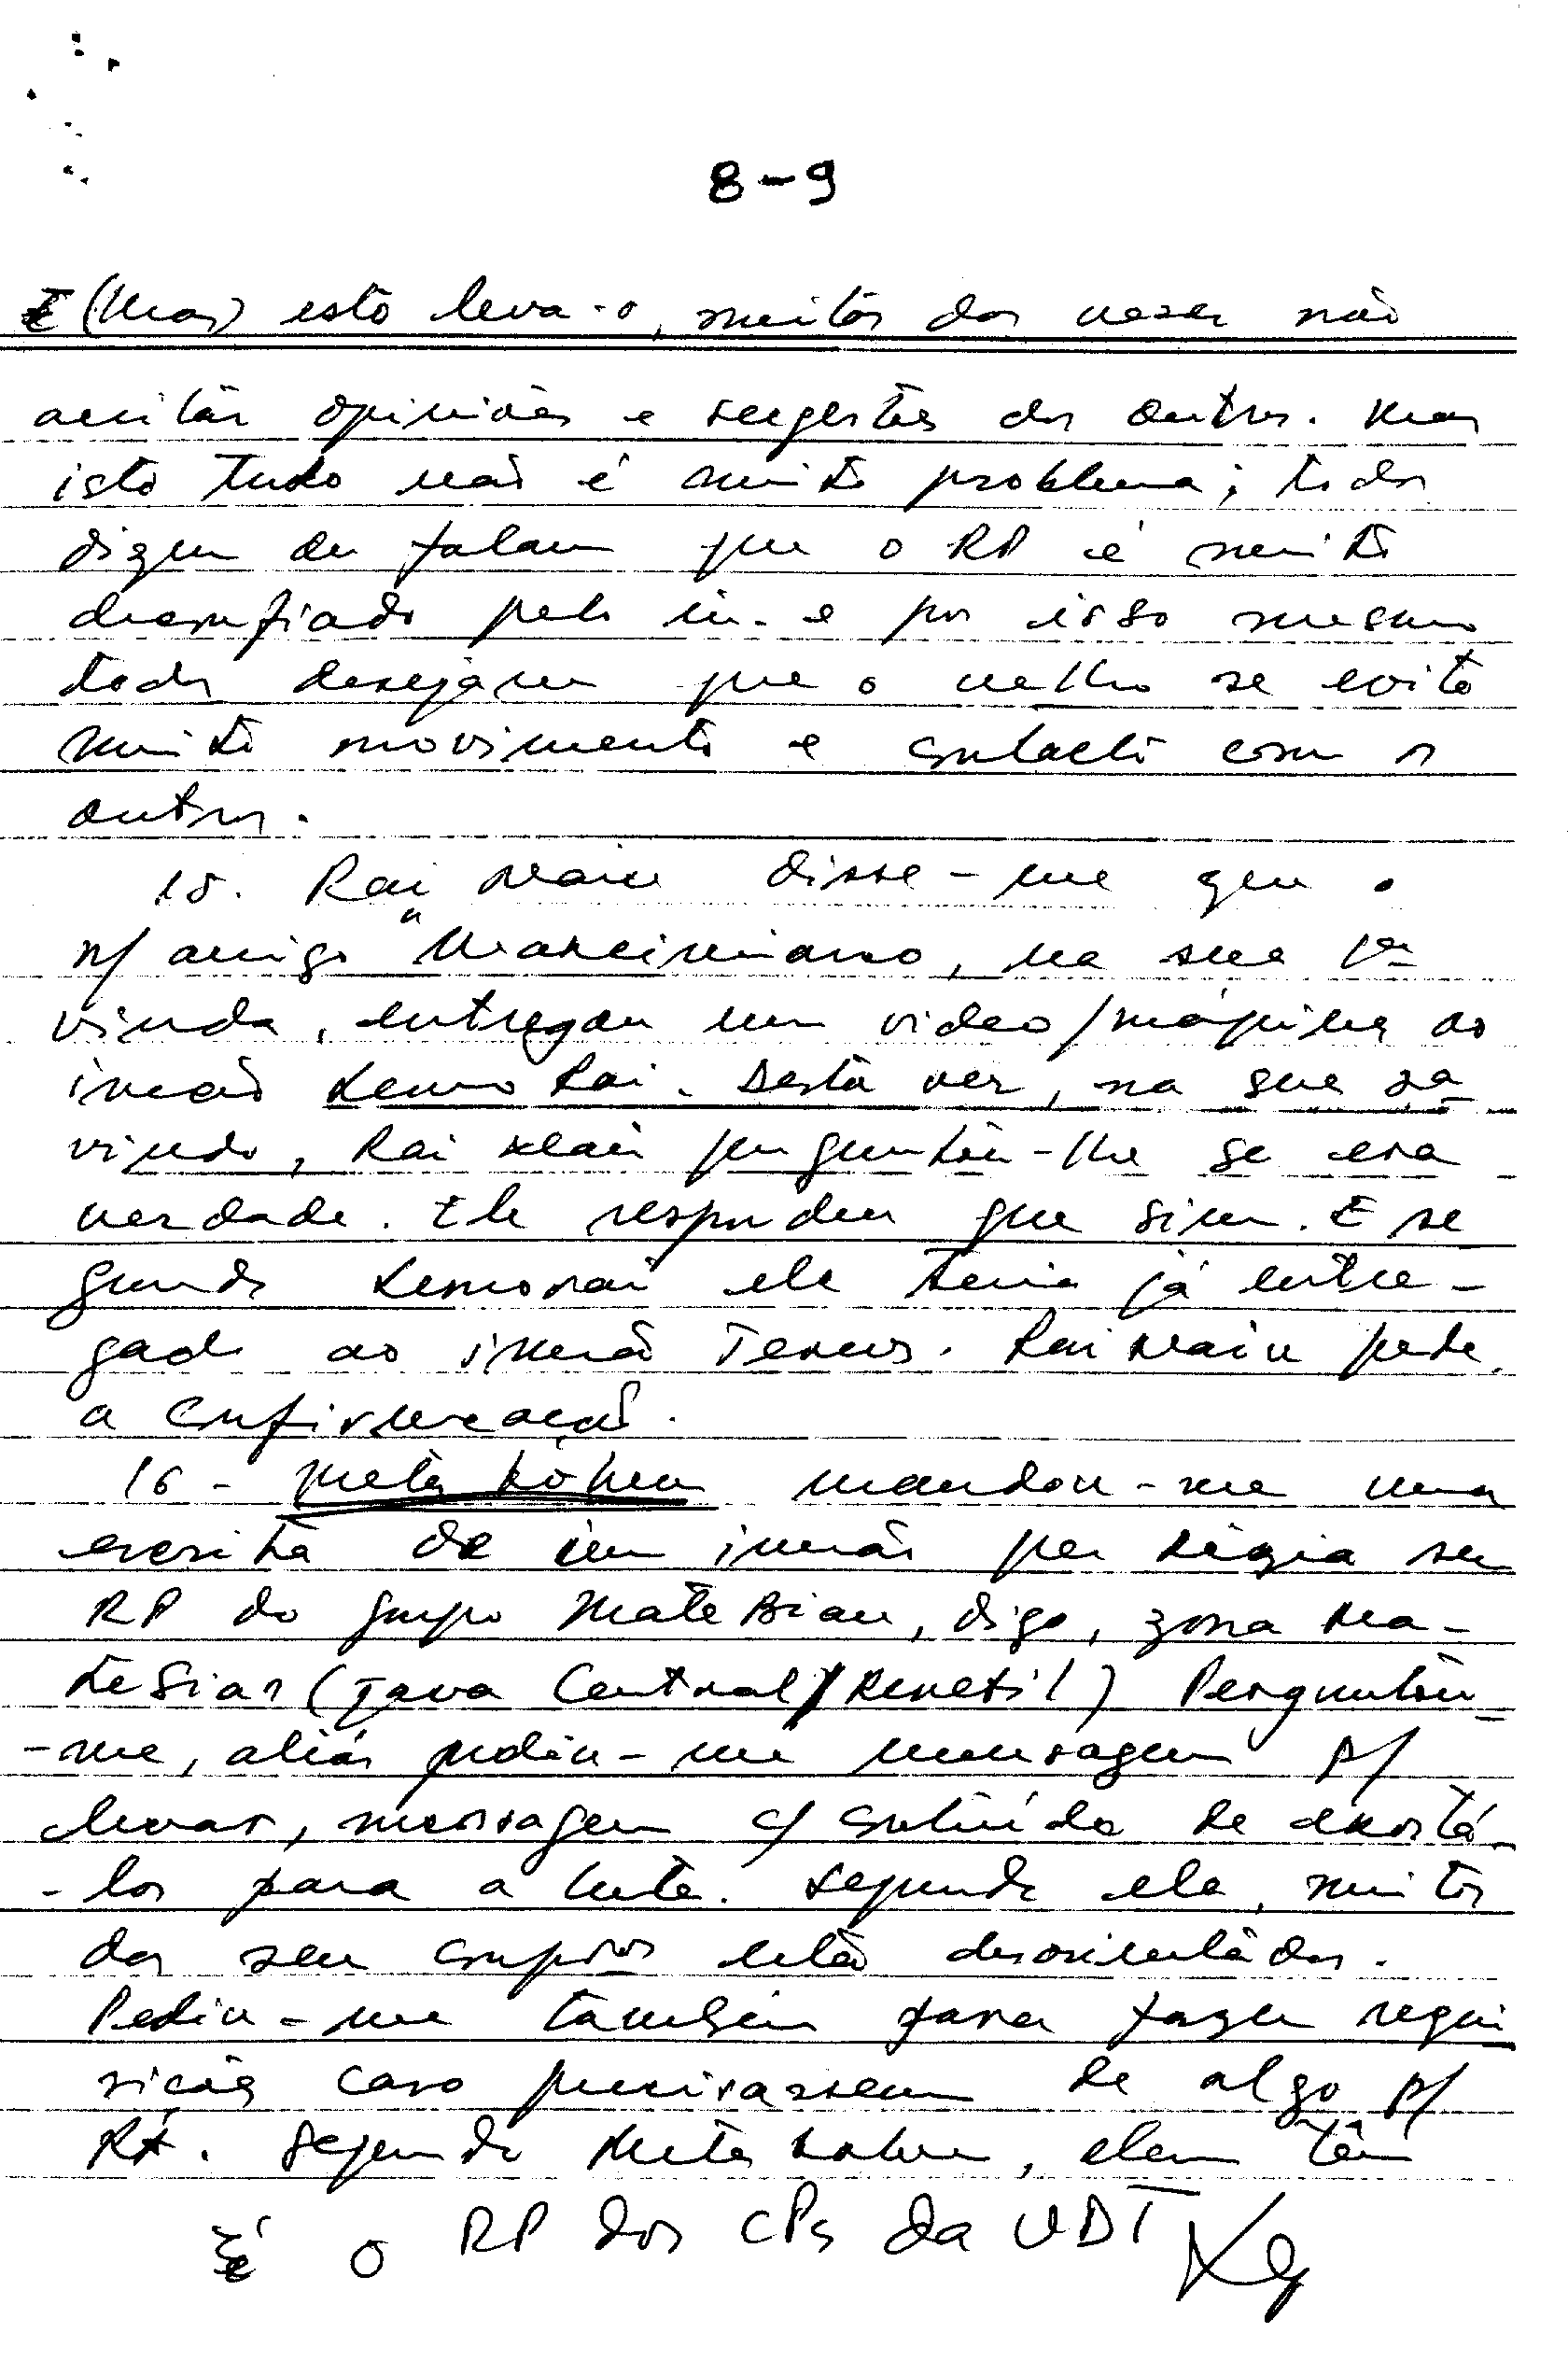 8-9
(Mas) isto leva-o, muitas das vezes não
aceitar opiniões e sugestões dos outros. Mas
isto tudo não é muito problema; todos
dizem ou falam que o RP é muito
desconfiado pelo in. e por isso mesmo
todos desejam que o velho se evite
muito movimento e contacto com os
outros.
15. Rai Nain disse-me que o
n/ amigo "Maximiano, na sua 1ª
vinda, entregou um video/máquina ao
irmão Lemo Rai. Desta vez, na sua 2ª
vinda, Rai Nain perguntou-lhe se era
verdade. Ele respondeu que sim. E se
gundo Lemorai ele teria já entre-
gado ao irmão Tenus. Rai Nain pede
a confirmação.
16 - Meta Kóhen mandou-me uma
escrita de um irmão que dizia ser
RP do grupo MateBian, digo, zona Ma-
tebian (Java Central/Renetil) Perguntou-
-me, aliás pediu-me mensagem p/
levar, mensagem c/ contúido de exortá-
-los para a luta. Segundo ele, muitos
dos seus compºs estão desorientados.
Pediu-me também para fazer requi
sição caso precisassem de algo p/
RA. Segundo Meta Kohen, elem têm
É o RP dos CPs da UDT XG